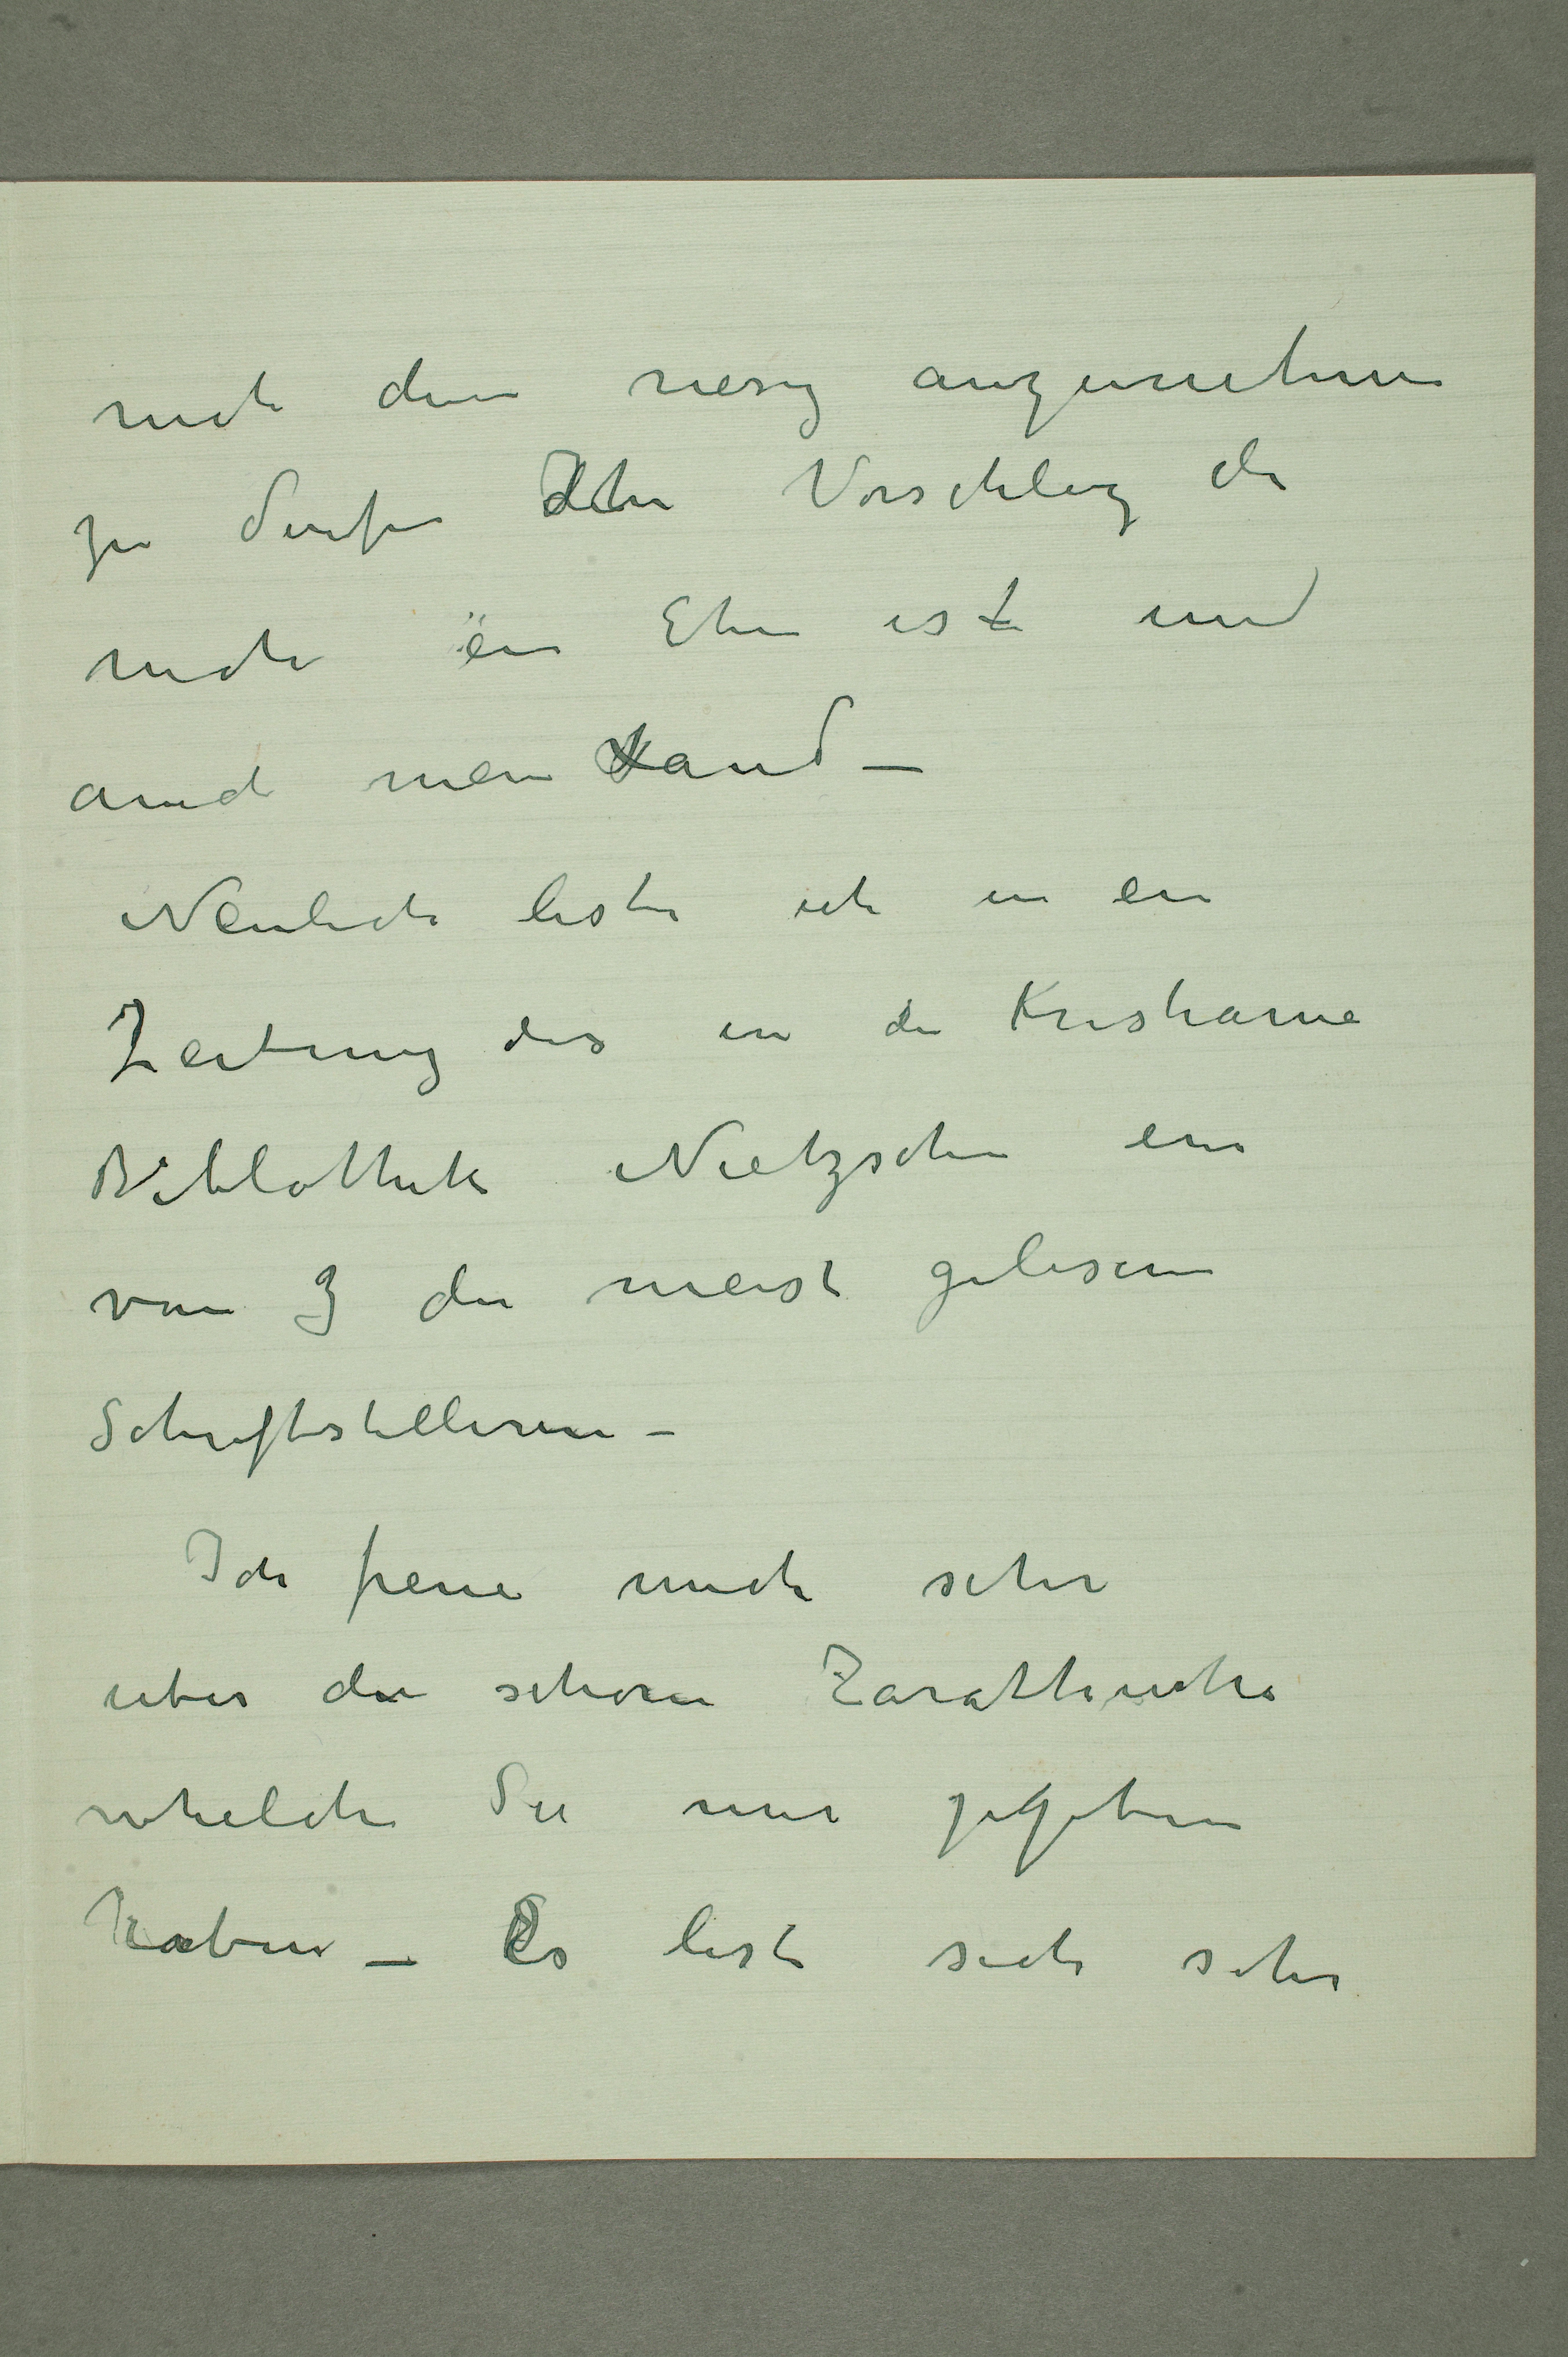 mich denn riesig anzunehmen
zu durfen Ihr Vorschlag der
mich ein Ehre ist und
auch mein Land –
Neulich leste ich in ein
Zeitung das in der Kristiania
Bibliothek Nietzsche ein
von 3 der meist gelesenen
Schriftstelleren –
Ich freue mich sehr
uber den schönen Zarathustra
whelche Sie mir gegeben
haben – Es lest sich sehr